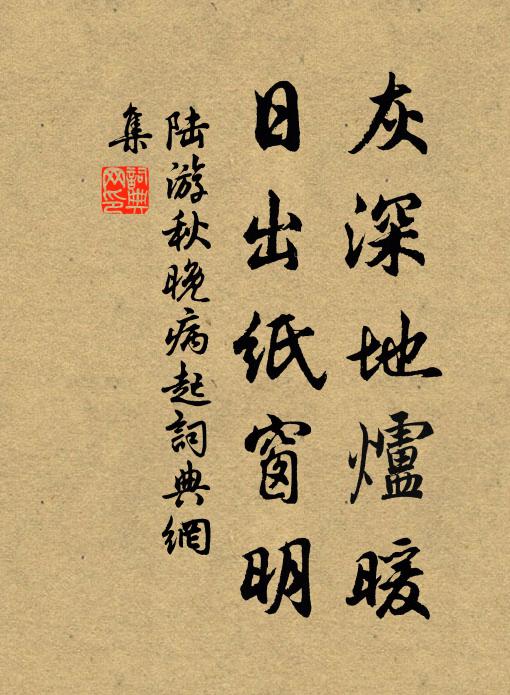 灰深地爐暖
日出紙窗明
陆游秋晚病起詞典網
集
詞典
网印